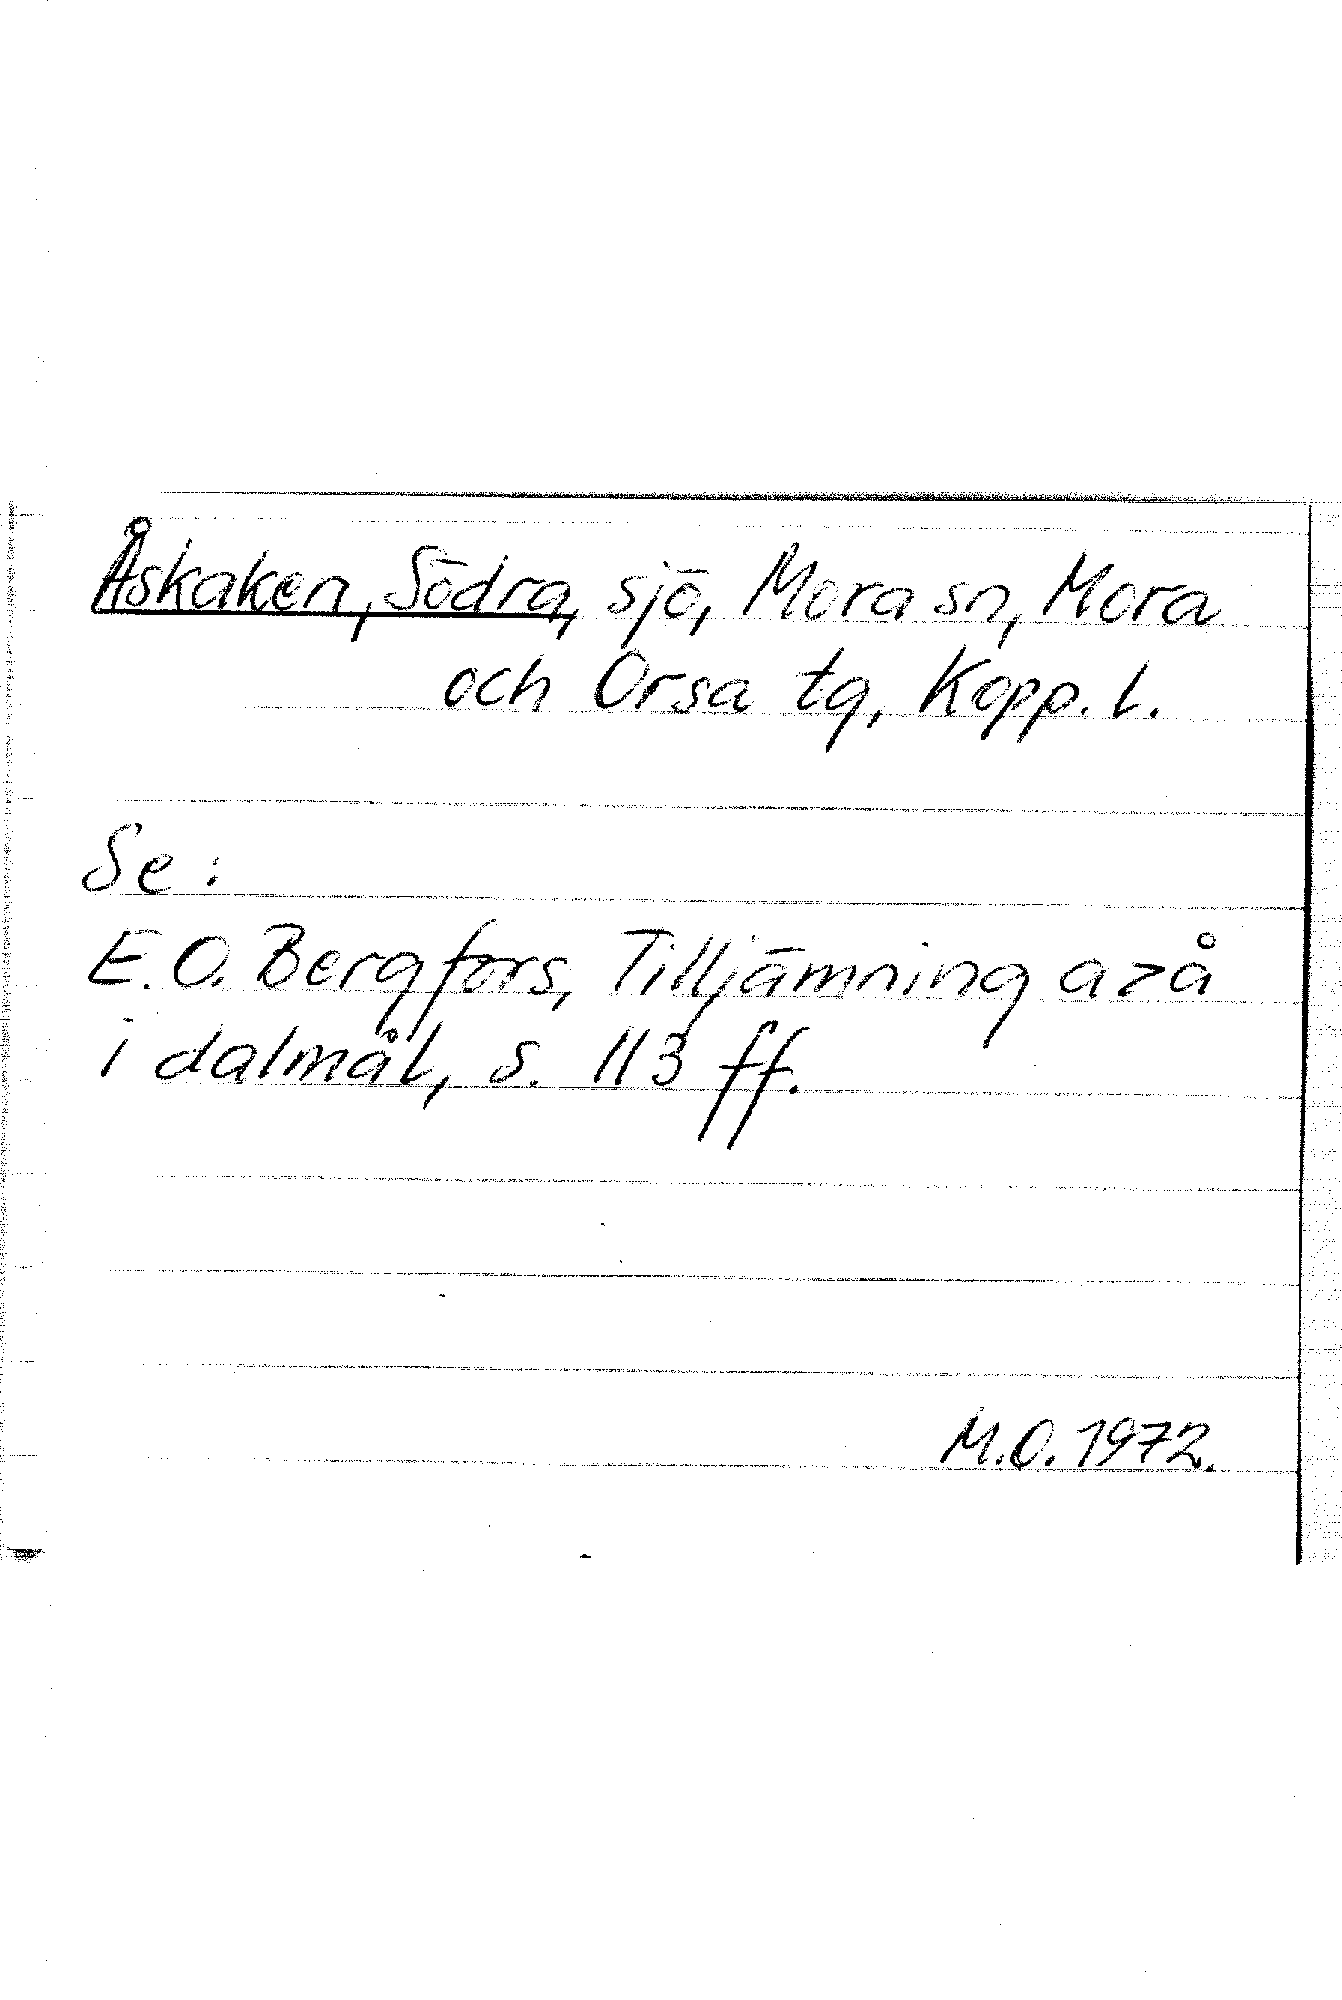 Åskaken, Södra, sjö, Mora sn, Mora
och Orsa tg, Kopp. l.
Se:
E.O. Bergfors, Tilljämning a>å
i dalmål, s. 113 ff.
M.O. 1972.